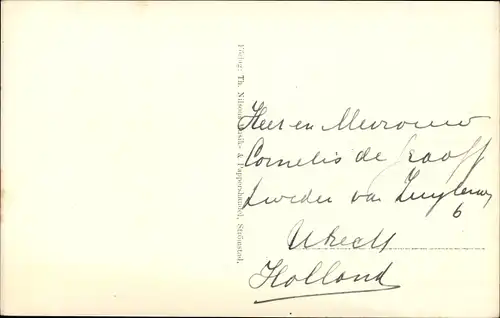 Förlag: Th. Nilsons Musik- & Pappershandel, Strömstad.
Heer en Mevrouw
Cornelis de Graaff
Zweder van Zuylenweg
6
Utrecht
Holland